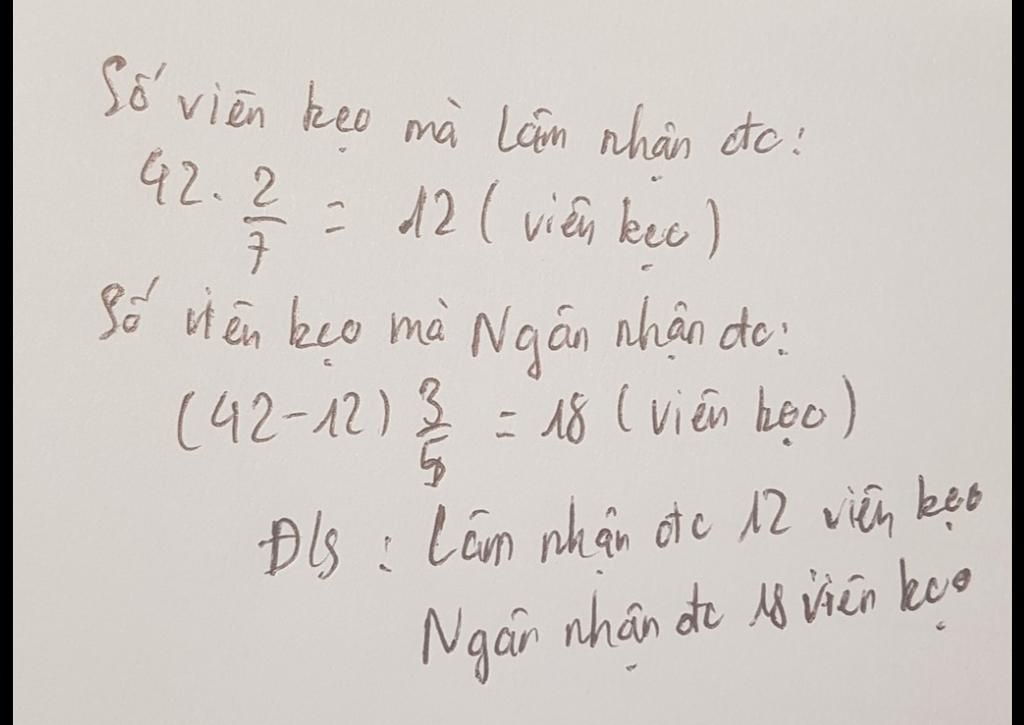 Số viên kẹo mà Lâm nhận đc:
42. 2/7 = 12 ( viên kẹo )
Số viên kẹo mà Ngân nhận đc:
(42-12) 3/5 = 18 ( viên kẹo )
Đ/S : Lâm nhận đc 12 viên kẹo
Ngân nhận đc 18 viên kẹo